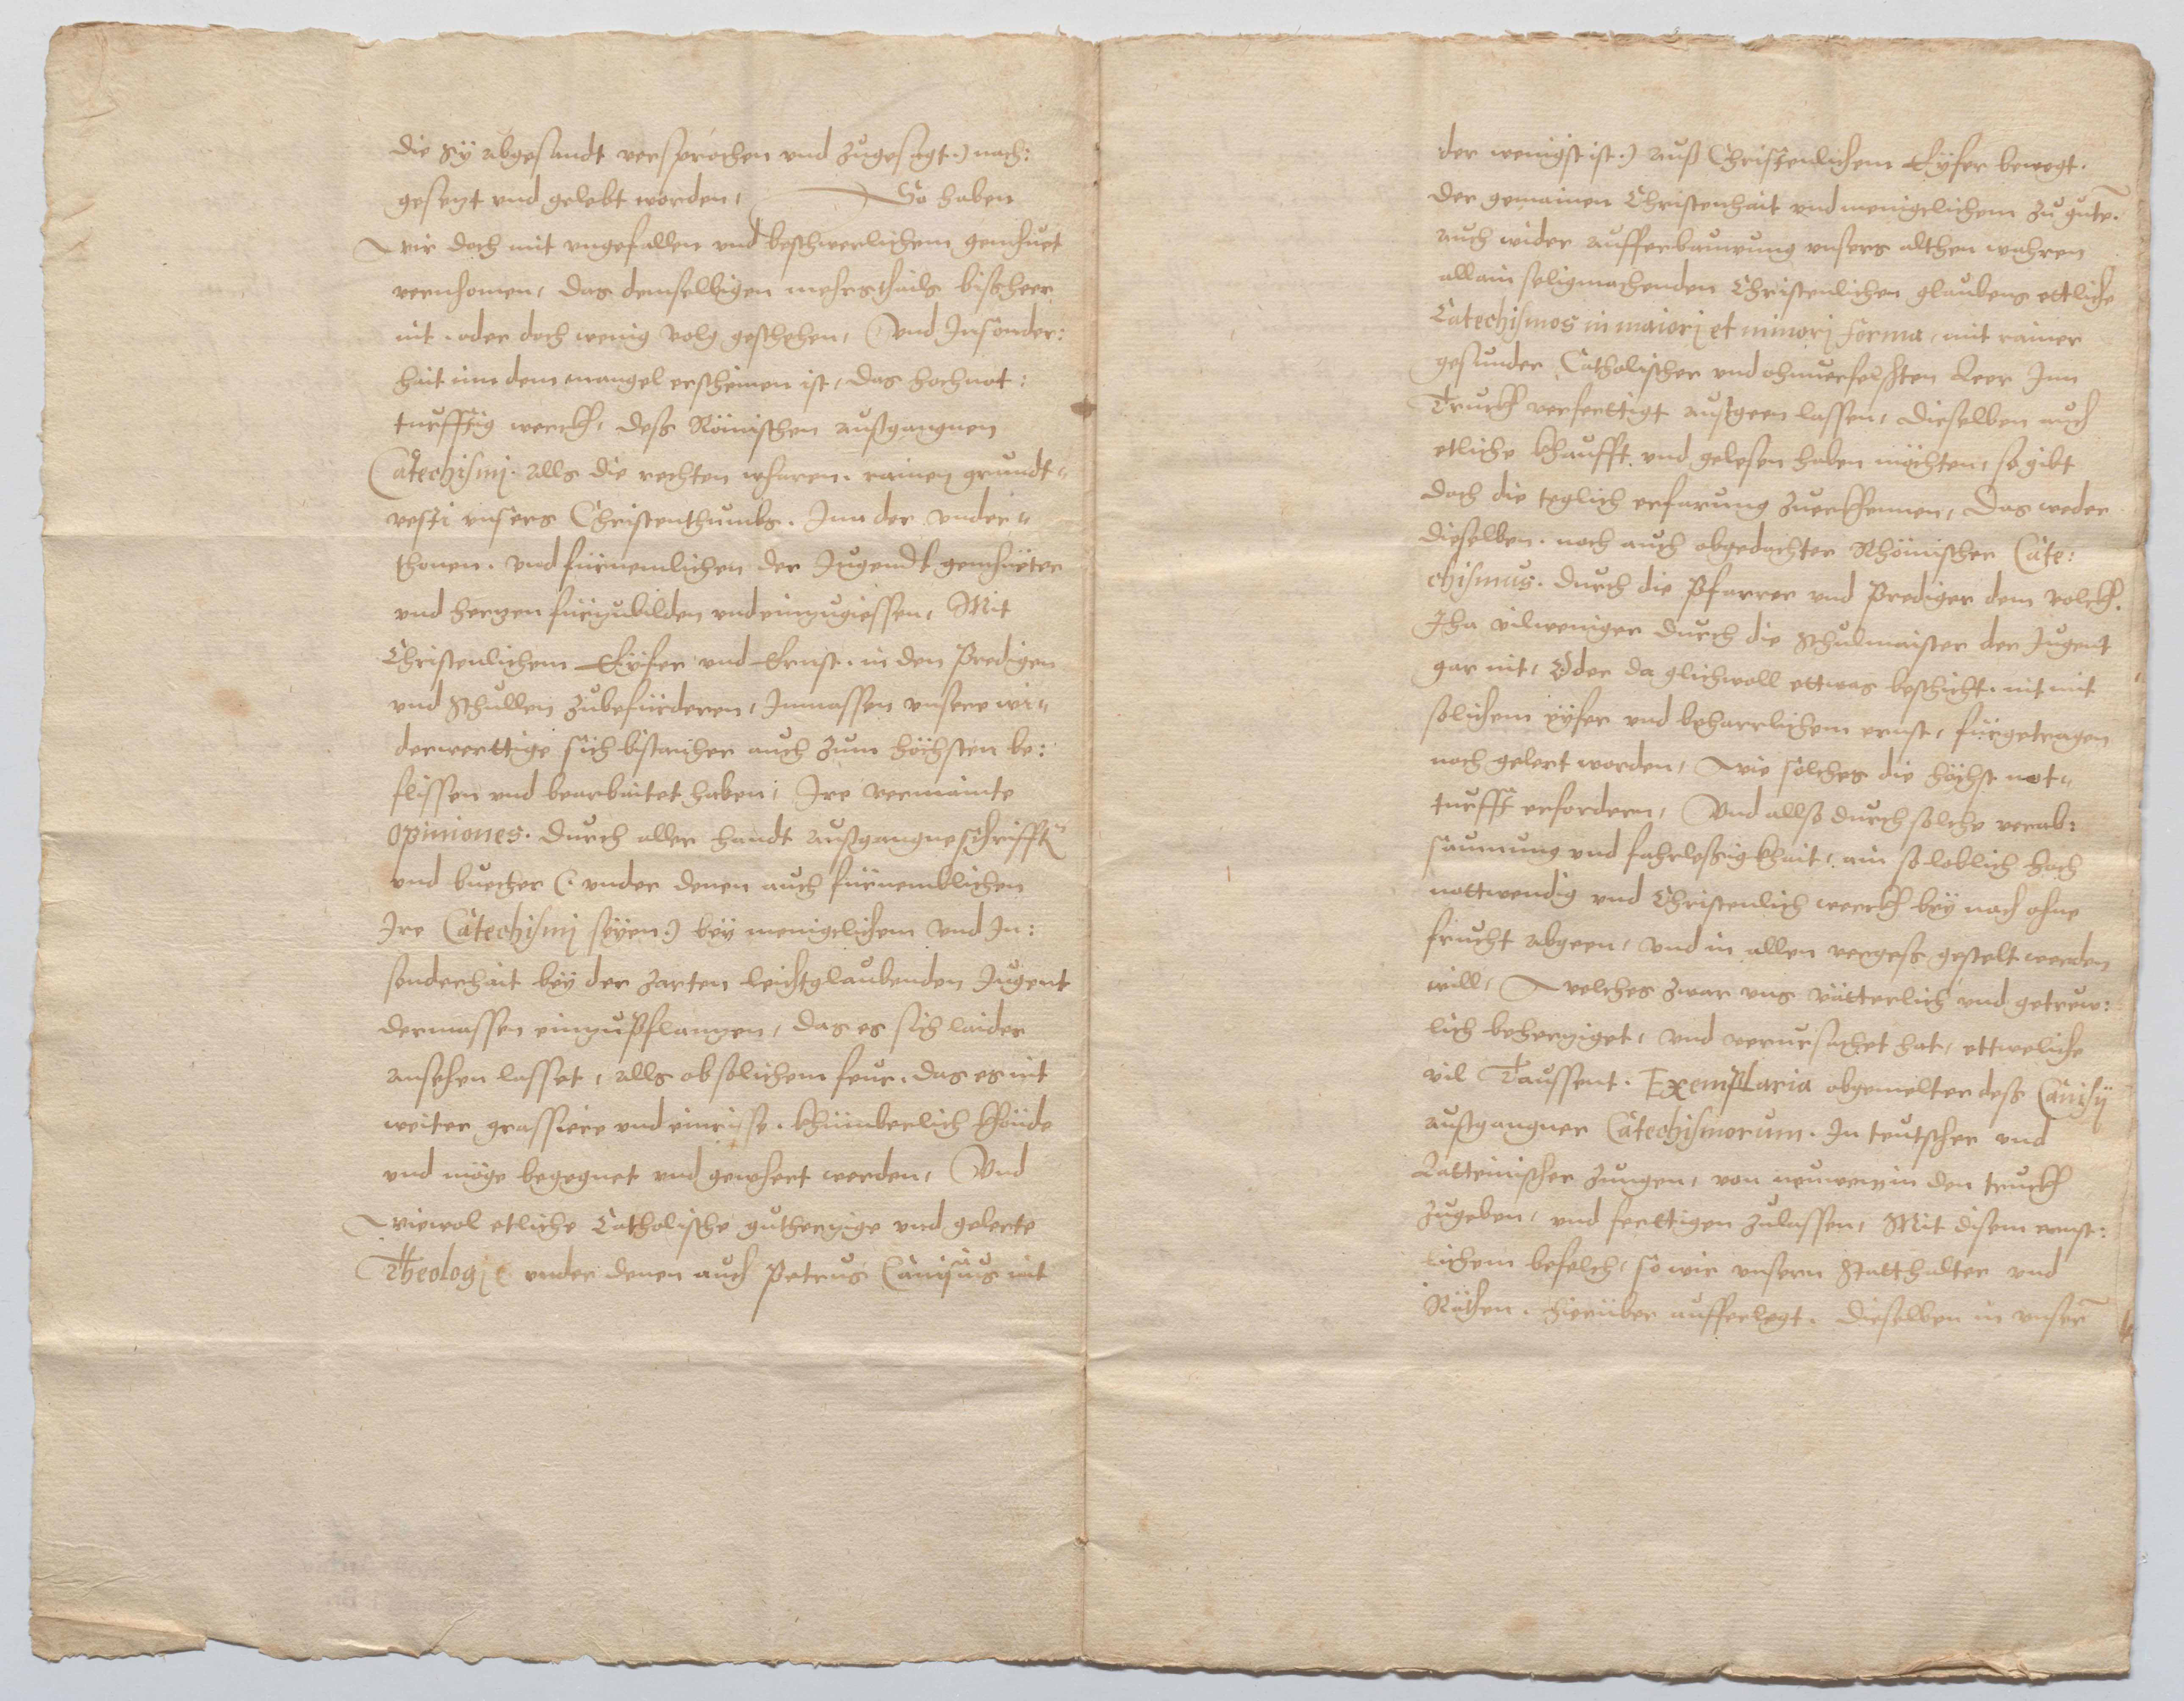 die Sÿ abgesandt versprochen vnd zugesagt.) nach:
gesezt vnd gelebt worden, So haben
wir doch mit vngefallen vnd beschwerlichem gemhuet
vernhomen, das demselbigen mehrsthails bisheer
nit. oder doch wenig volg geschehen, Vnd Insonder:
hait inn dem mangel erscheinen ist, das hochnot:
turfftig werckh, dess Römischen außgangnen
Catechismj. alls die rechten wharen. rainen grundt„
vesti vnsers Christenthumbs. Inn der vnder„
thonen. vnd fürnemlichen der Jugendt gemhüeter
vnd herzen fürzubilden vnd einzugiessen, Mit
Christenlichem Eÿfer vnd Ernst. in den Predigen
vnd Schullen zubefürderen, Inmassen vnsere wi„
derwerttige sich bistanher auch zum höchsten be:
flissen vnd bearbaitet haben, Ire vermainte
opiniones. durch aller handt außgangne schrifften
vnd buecher (: vnder denen auch fürnemblichen
Ire Catechismj seÿen.) beÿ menigclichem vnd In:
sonderhait beÿ der zarten leichtglaubenden Jugent
dermassen einzupflanzen, das es sich laider
ansehen lasset, alls ob solichem feur. das es nit
weiter grassiere vnd einreisse. khümberlich khönde
vnd möge begegnet vnd gewhert werden, Vnd
wiewol etliche Catholische guthertzige vnd gelerte
Theologj (: vnder denen auch Petrus Canisius nit
der wenigst ist.) auß Christenlichem Eÿfer bewegt.
der gemainen Christenhait vnd menigclichem zu guten.
auch wider aufferbauwung vnsers althen wahren
allain seligmachenden Christenlichen glaubens ettliche
Catechismos in maiorj et minorj forma, mit rainer
gesunder Catholischer vnd ohnuerfelschten Leer Inn
Truckh verferttigt außgeen lassen, dieselben auch
etliche khaufft. vnd gelesen haben möchten, so gibt
doch die teglich erfarung zuerkhennen, das weder
dieselben. noch auch obgedachter Rhömischer Cate:
chismus. durch die Pfarrer vnd Prediger dem volckh.
Jha vilweniger durch die Schulmaister der Jugent
gar nit, Oder da glichwoll ettwas beschicht. nit mit
solichem eÿfer vnd beharrlichem ernst, fürgetragen
noch gelert worden, wie solches die höchst not„
turfft erfordern, Vnd allso durch solche verab:
saumung vnd fahrlessigkhait, ain so loblich hoch
nottwendig vnd Christenlich werckh beÿ nach ohne
frucht abgeen, vnd in allen vergess gestelt werden
will, welches zwar vns vätterlich vnd getrew:
lich beherziget, vnd verursachet hat, ettweliche
vil Taussent. Exemplaria obgemelter dess Canisij
außgangner Catechismorum. In teutscher vnd
Latteinischer Zungen, von neuwem in den truckh
zugeben, vnd ferttigen zulassen, Mit disem ernst:
lichem befelch, so wir vnsern Statthalter vnd
Räthen. hierüber aufferlegt. dieselben in vnser